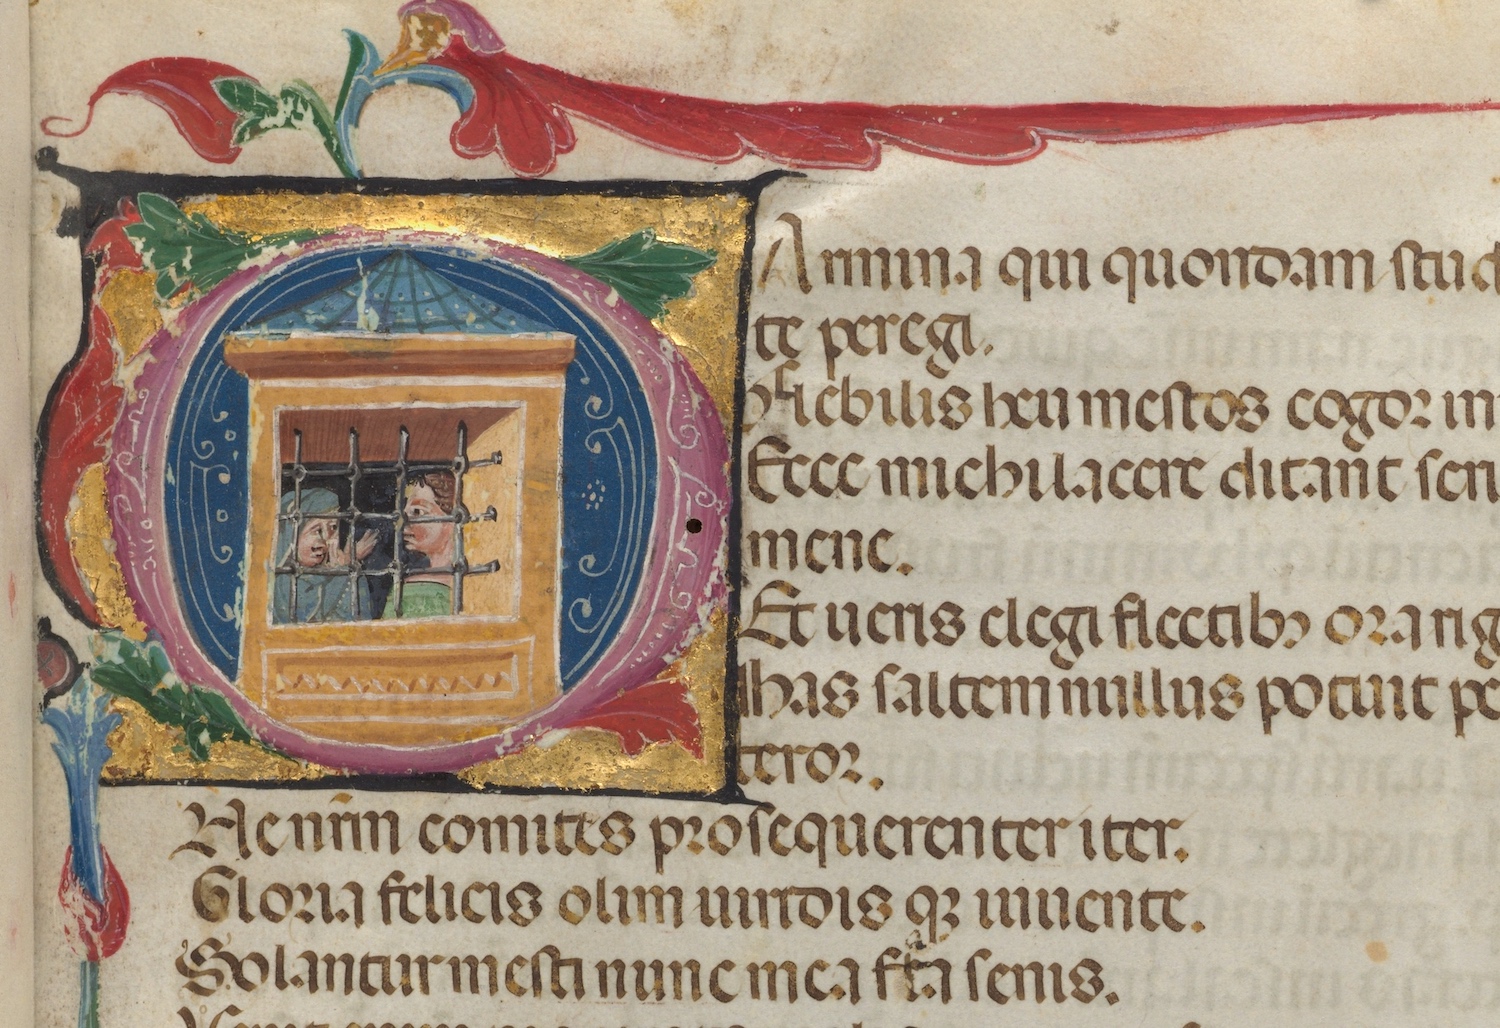 Armina qui quondam stud
te peregi.
Flebilis heu mestos cogor in
Ecce michi lacere dictant
mene.
Et ueris elegi fletibꝫ ora rig
has saltem nullus potuit pe
teror.
Ne nr̄m comites prosequerenter iter.
Gloria felicis olim uirdis qꝫ iuuente.
Solantur mesti nunc mea fata senis.